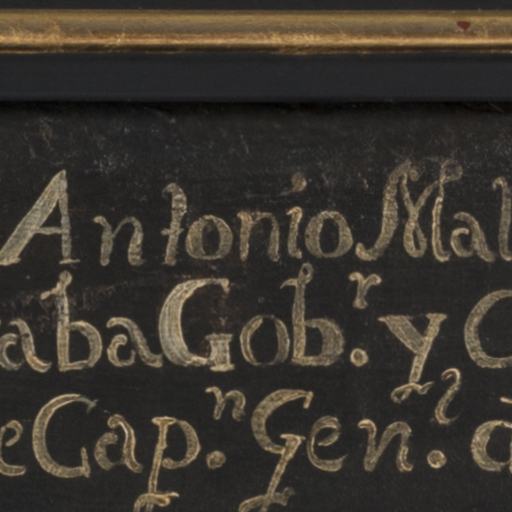 Antonio Mal
aba Gob.r y C
e Cap.n Gen.l a